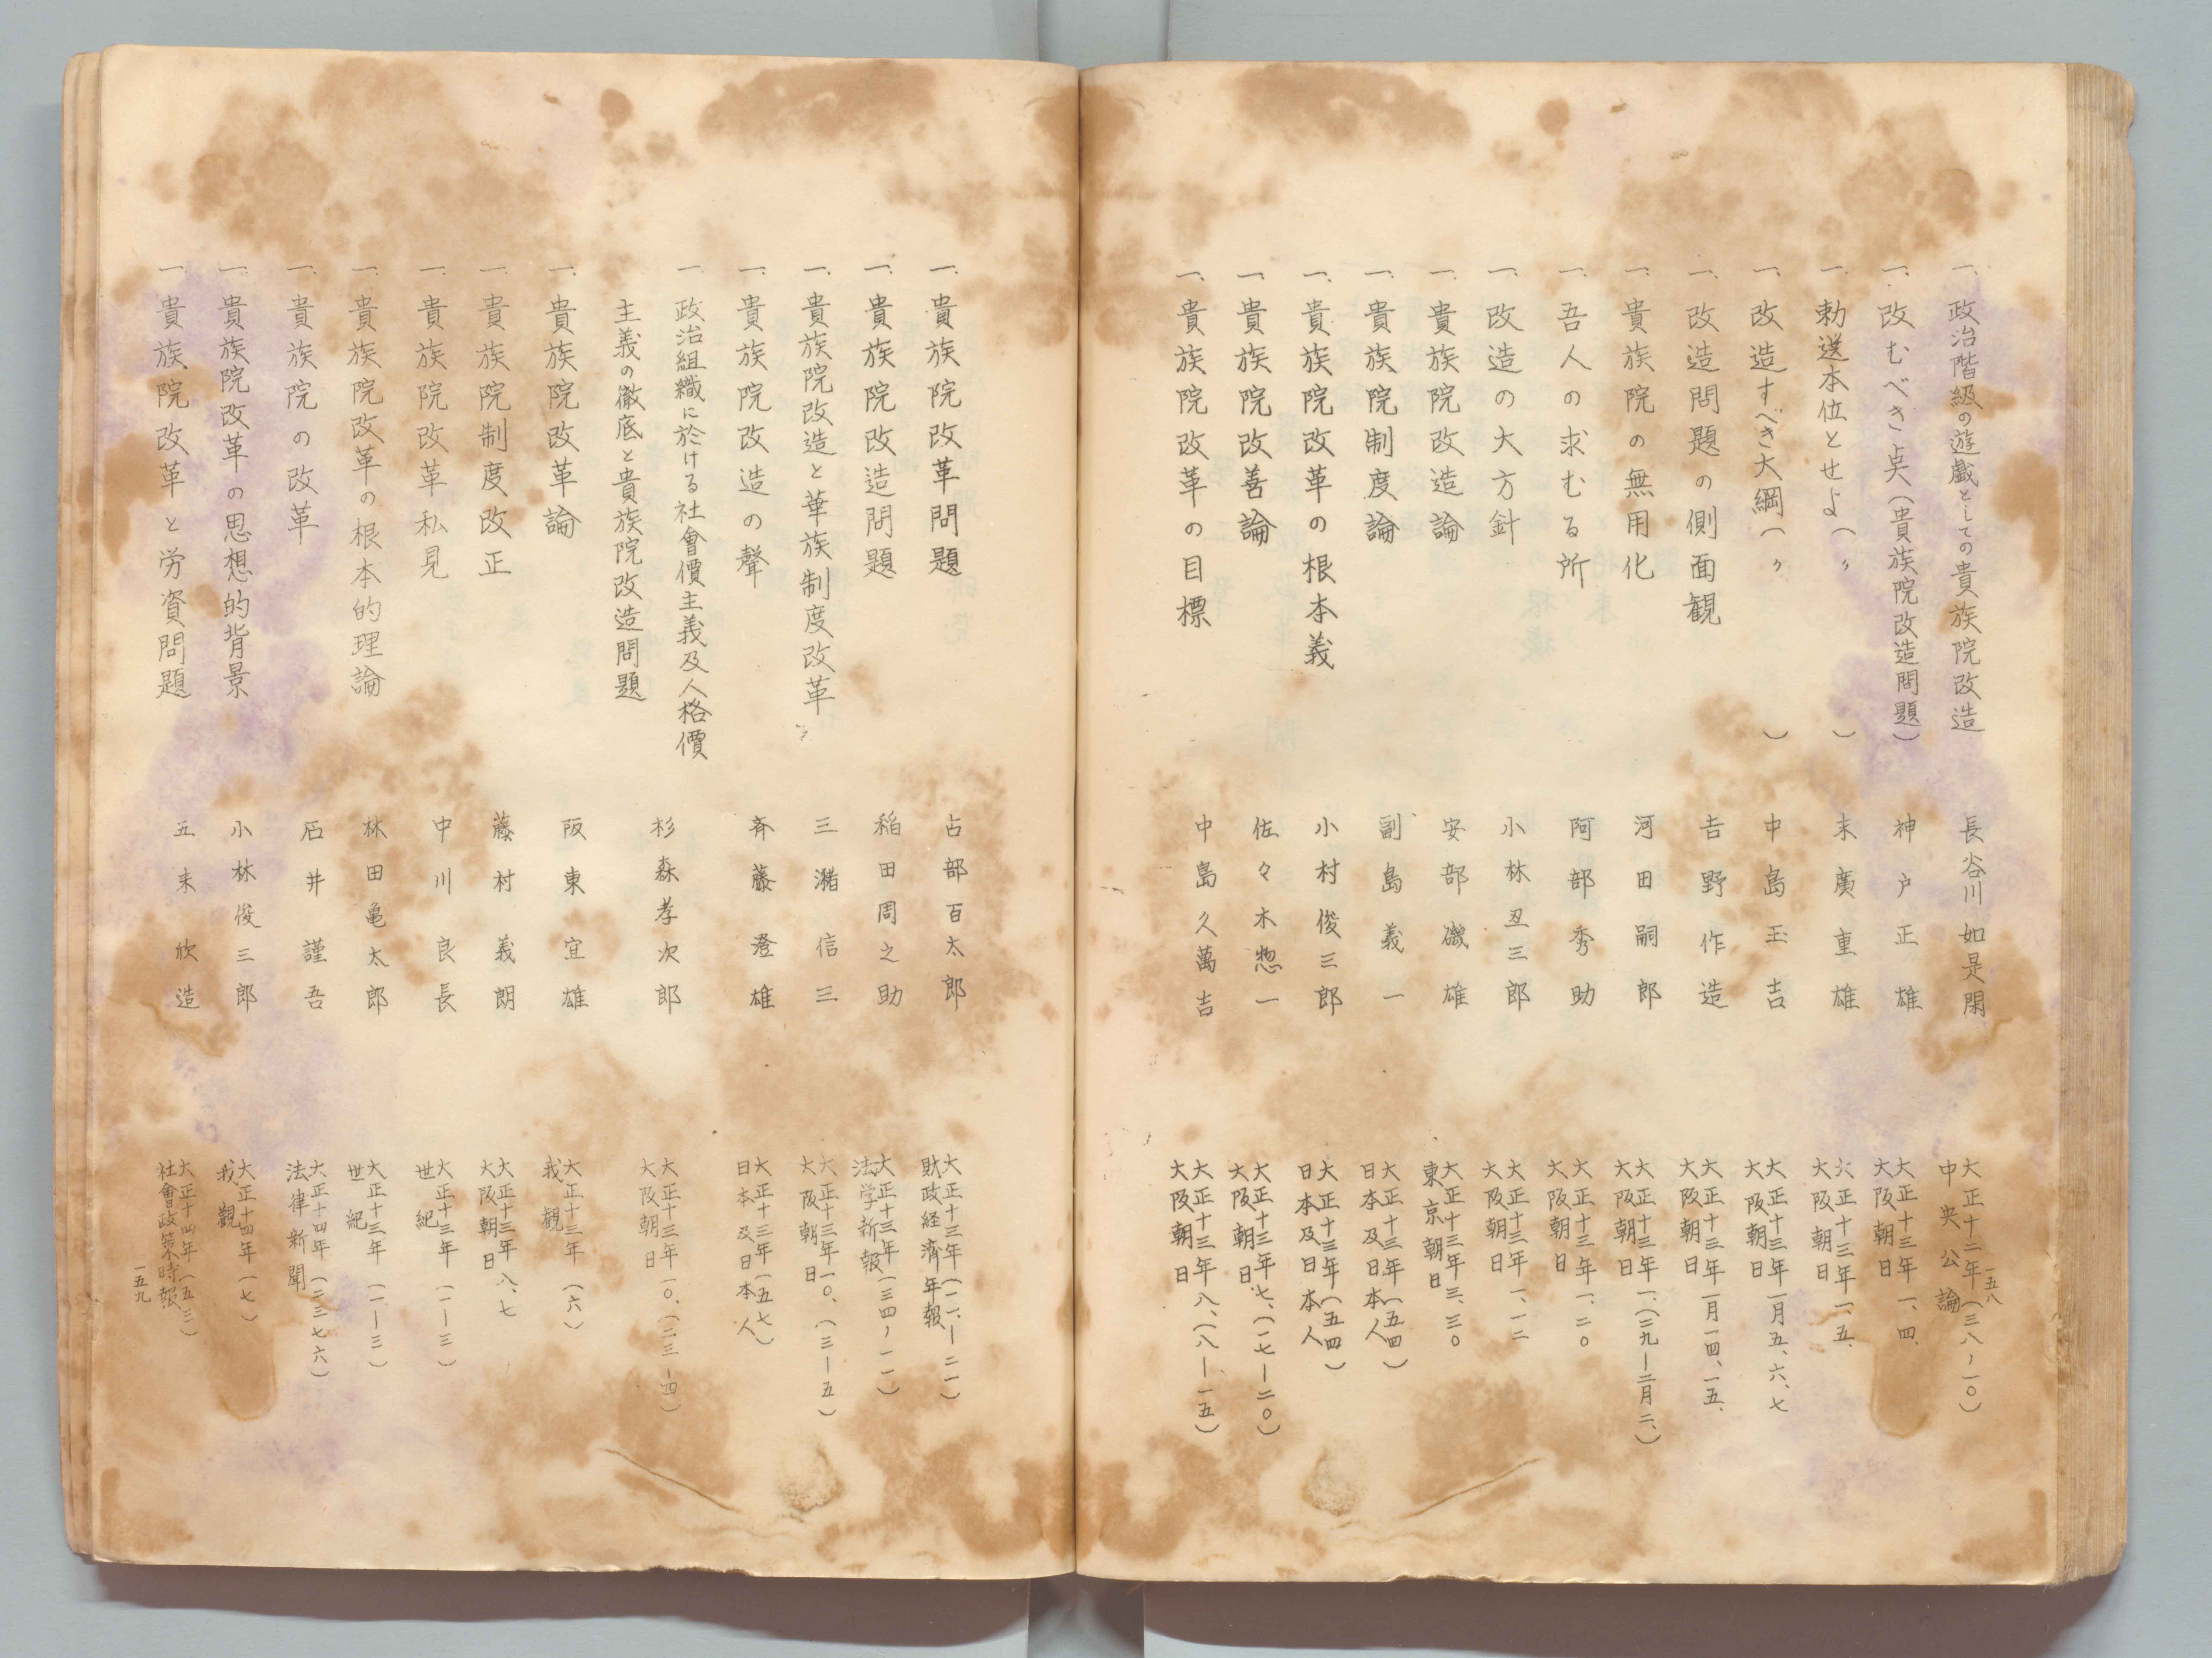 一、政治階級の遊戯としての貴族院改造 長谷川如是閑 大正十二年(三八ノ一〇) 中央公論
一、改むべき点(貴族院改造問題) 神戸正雄 大正十三年一、四、 大阪朝日
一、勅送本位とせよ(〃) 末廣重雄 大正十三年一、五、 大阪朝日
一、改造すべき大綱(〃) 中島玉吉 大正十三年一月五、六、七 大阪朝日
一、改造問題の側面観 吉野作造 大正十三年一月一四、一五、 大阪朝日
一、貴族院の無用化 河田嗣郎 大正十三年一、(二九―二月二、) 大阪朝日
一、吾人の求むる所 阿部秀助 大正十三年一、二〇 大阪朝日
一、改造の大方針 小林丑三郎 大正十三年一、一二 大阪朝日
一、貴族院改造論 安部磯雄 大正十三年三、三〇 東京朝日
一、貴族院制度論 副島義一 大正十三年(五四) 日本及日本人
一、貴族院改革の根本義 小村俊三郎 大正十三年(五四) 日本及日本人
一、貴族院改善論 佐々木惣一 大正十三年七、(一七―二〇) 大阪朝日
一、貴族院改革の目標 中島久萬吉 大正十三年八、(八―一五) 大阪朝日
一五八
一、貴族院改革問題 占部百太郎 大正十三年(一一、―二一) 財政経済年報
一、貴族院改造問題 稲田周之助 大正十三年(三四ノ一一) 法学新報
一、貴族院改造と華族制度改革 三潴信三 大正十三年一〇、(三―五) 大阪朝日
一、貴族院改造の聲 斉藤澄雄 大正十三年(五七) 日本及日本人
一、政治組織に於ける社會價主義及人格價
主義の徹底と貴族院改造問題 杉森孝次郎 大正十三年一〇、(二三―四) 大阪朝日
一、貴族院改革論 阪東宜雄 大正十三年(六) 我観
一、貴族院制度改正 藤村義朗 大正十三年八、七 大阪朝日
一、貴族院改革私見 中川良長 大正十三年(一―三) 世紀
一、貴族院改革の根本的理論 林田亀太郎 大正十三年(一―三) 世紀
一、貴族院の改革 石井謹吾 大正十四年(二三七六) 法律新聞
一、貴族院改革の思想的背景 小林俊三郎 大正十四年(一七) 我観
一、貴族院改革と労資問題 五来欣造 大正十四年(五三) 社會政策時報
一五九